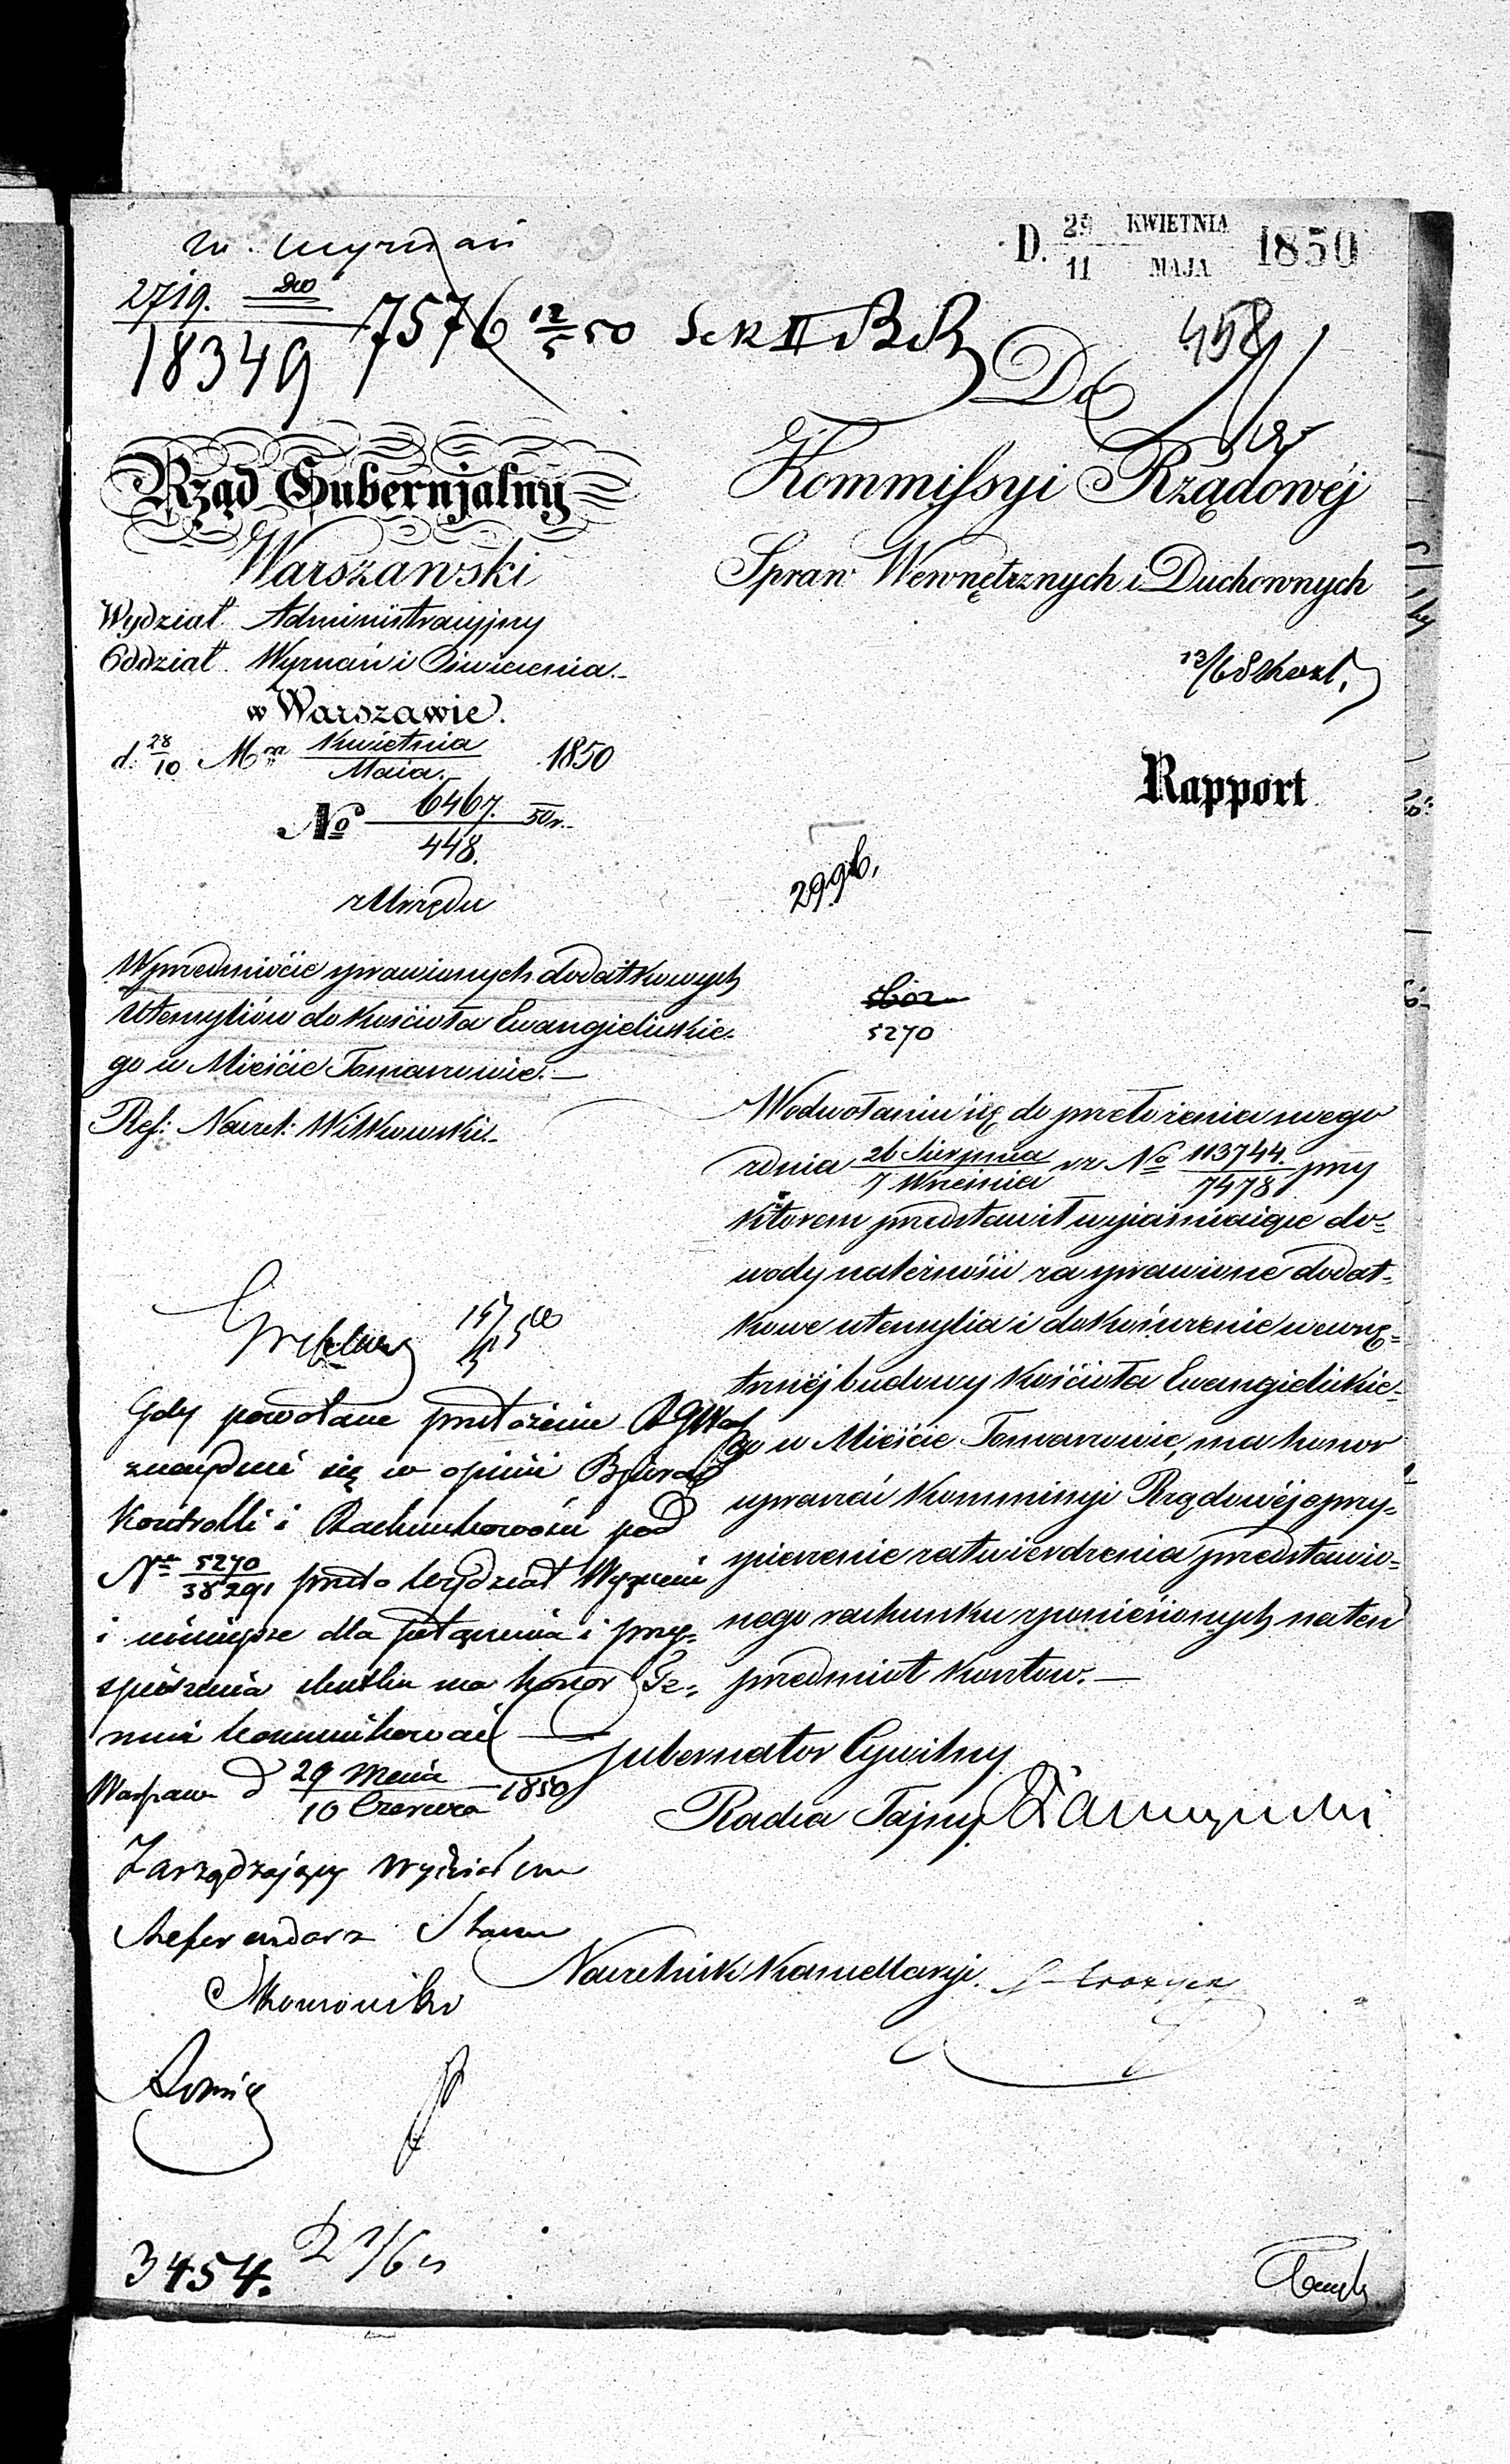 D. 29 KWIETNIA / 11 MAJA 1850
W. Wyznań
2719. / 18349 7576 12/5 50
458
Do
Rząd Gubernjalny
Warszawski
Wydział Administracyjny
Oddział Wyznań i Oświecenia.
w Warszawie.
d. 28/10 Mca Kwietnia / Maia. 1850
No 6467. / 448. 50r.
z Urzędu
Kommissyi Rządowéj
Spraw Wewnętrznych i Duchownych
Rapport
2996,
5270
W przedmiocie sprawionych dodatkowych
Utensyliów do Kościoła Ewangielickie-
go w Mieście Tomaszowie.—
Ref: Naczel: Witkowski.
W odwołaniu się do przełożenia swego
z dnia 26 Sierpnia / 7 Września z r. No 113744. / 7478 przy
którem przedstawił wyjaśniaiące do-
wody należności za sprawione dodat-
kowe utensylia i dokończenie wewnę-
trznéj budowy Kościoła Ewangielickie-
go w Mieście Tomaszowie, ma honor
upraszać Kommissyi Rządowéj o przy-
spieszenie zatwierdzenia przedstawio-
nego rachunku z poniesionych na ten
przedmiot kosztów.—
Gubernator Cywilny
Radca Tajny
Naczelnik Kancellaryi
Gdy powołane przełożenie
znajduie się w opinii Bióra
Kontrolli i Rachunkowości pod
Nr 5270 / 38291 przeto Wydział Wyznań
i niniejsze dla połączenia i przy-
spieszenia skutku ma honor Je-
muż kommunikować
Warszawa d 29 Maia / 10 Czerwca 1850
Zarządzający Wydziałem
Referendarz Stanu
3454.